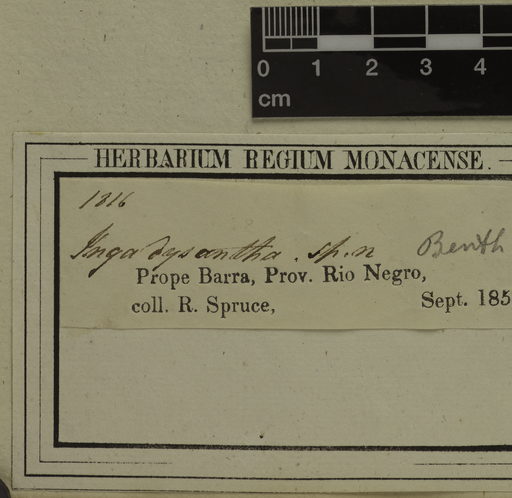 0 1 2 3 4
cm
HERBARIUM REGIUM MONACENSE.
1816
Inga dysantha . sp. n Benth
Prope Barra, Prov. Rio Negro,
coll. R. Spruce, Sept. 185